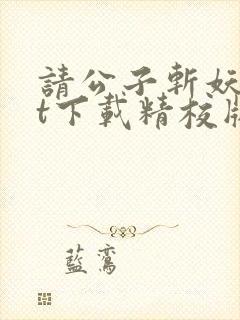 請公子斬妖
t下載精校版
藍鸞